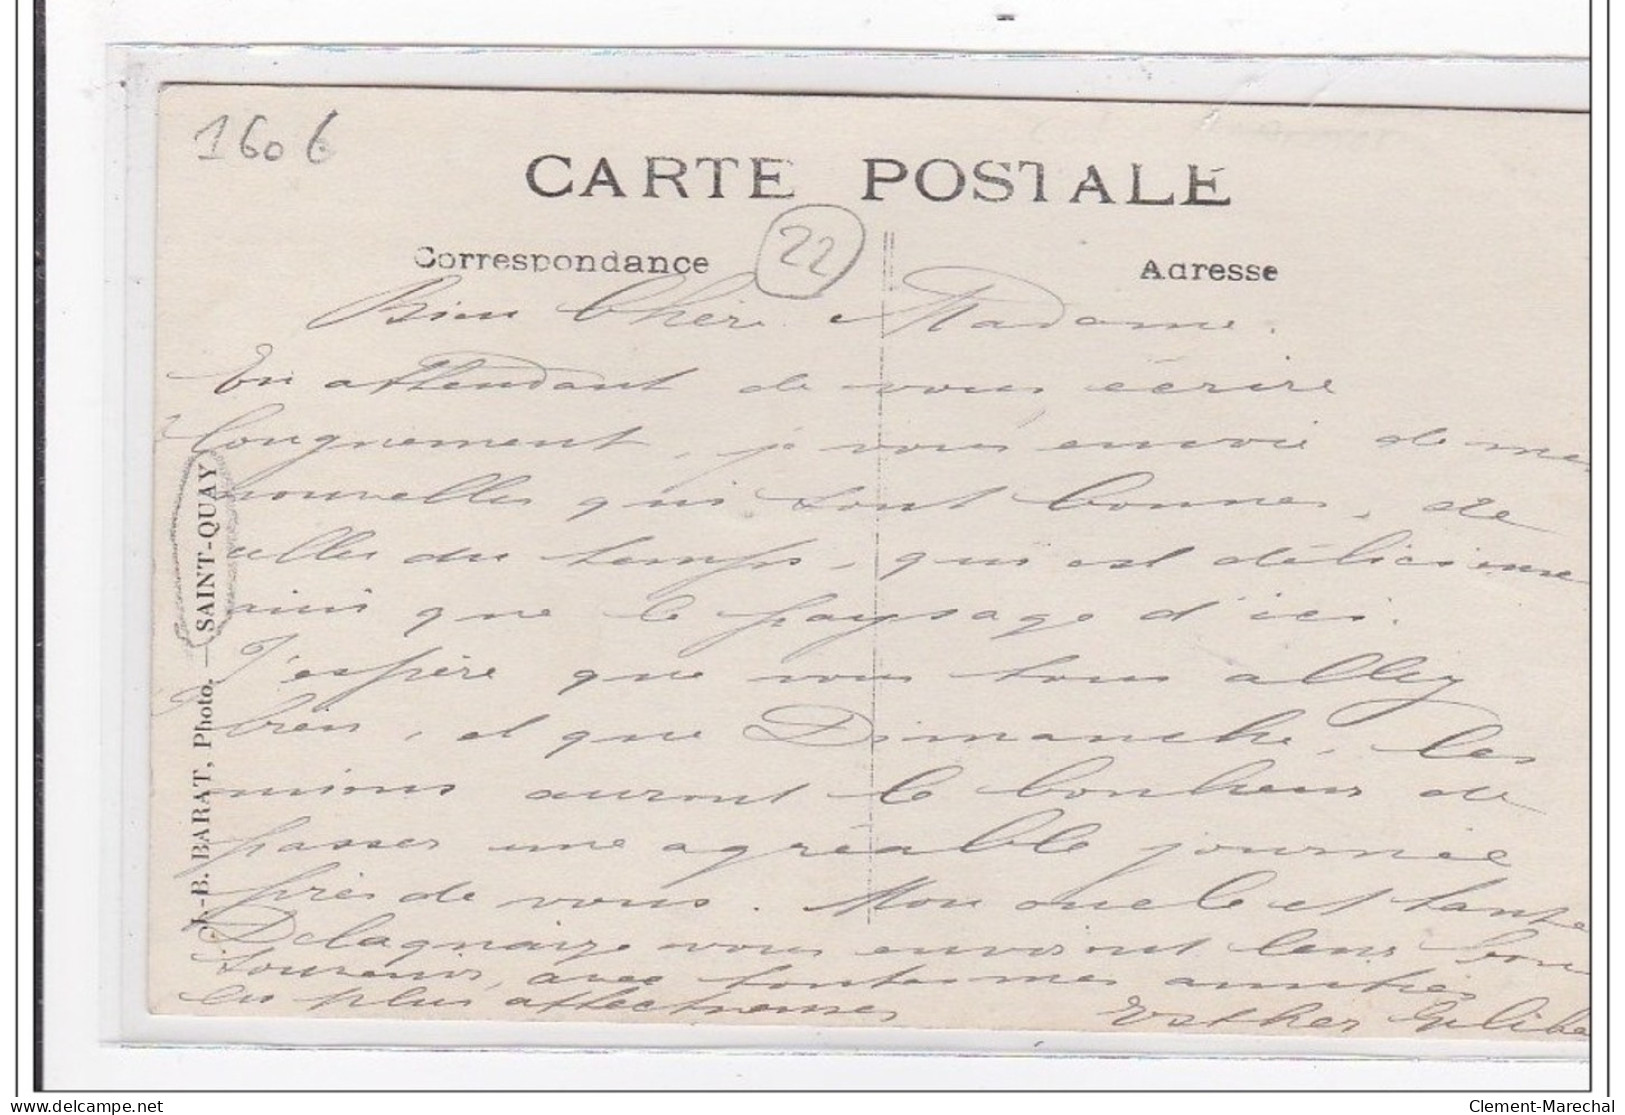 1606
CARTE POSTALE
Correspondance
22
Adresse
Bien Chère Madame.
En attendant de vous écrire
longuement, je vous envoie de mes
nouvelles qui sont bonnes, de
celles du temps, qui est délicieux
ainsi que le paysage d'ici.
J'espère que vous tous allez
bien, et que Dimanche, les
unions auront le bonheur de
passer une agréable journée
près de vous. Mon oncle et tante
vous envoient leurs bons
souvenirs, avec toutes mes amitiés
les plus affectueuses Esther
-B. BARAT, Photo. — SAINT-QUAY
Clement-Marechal
delcampe.net